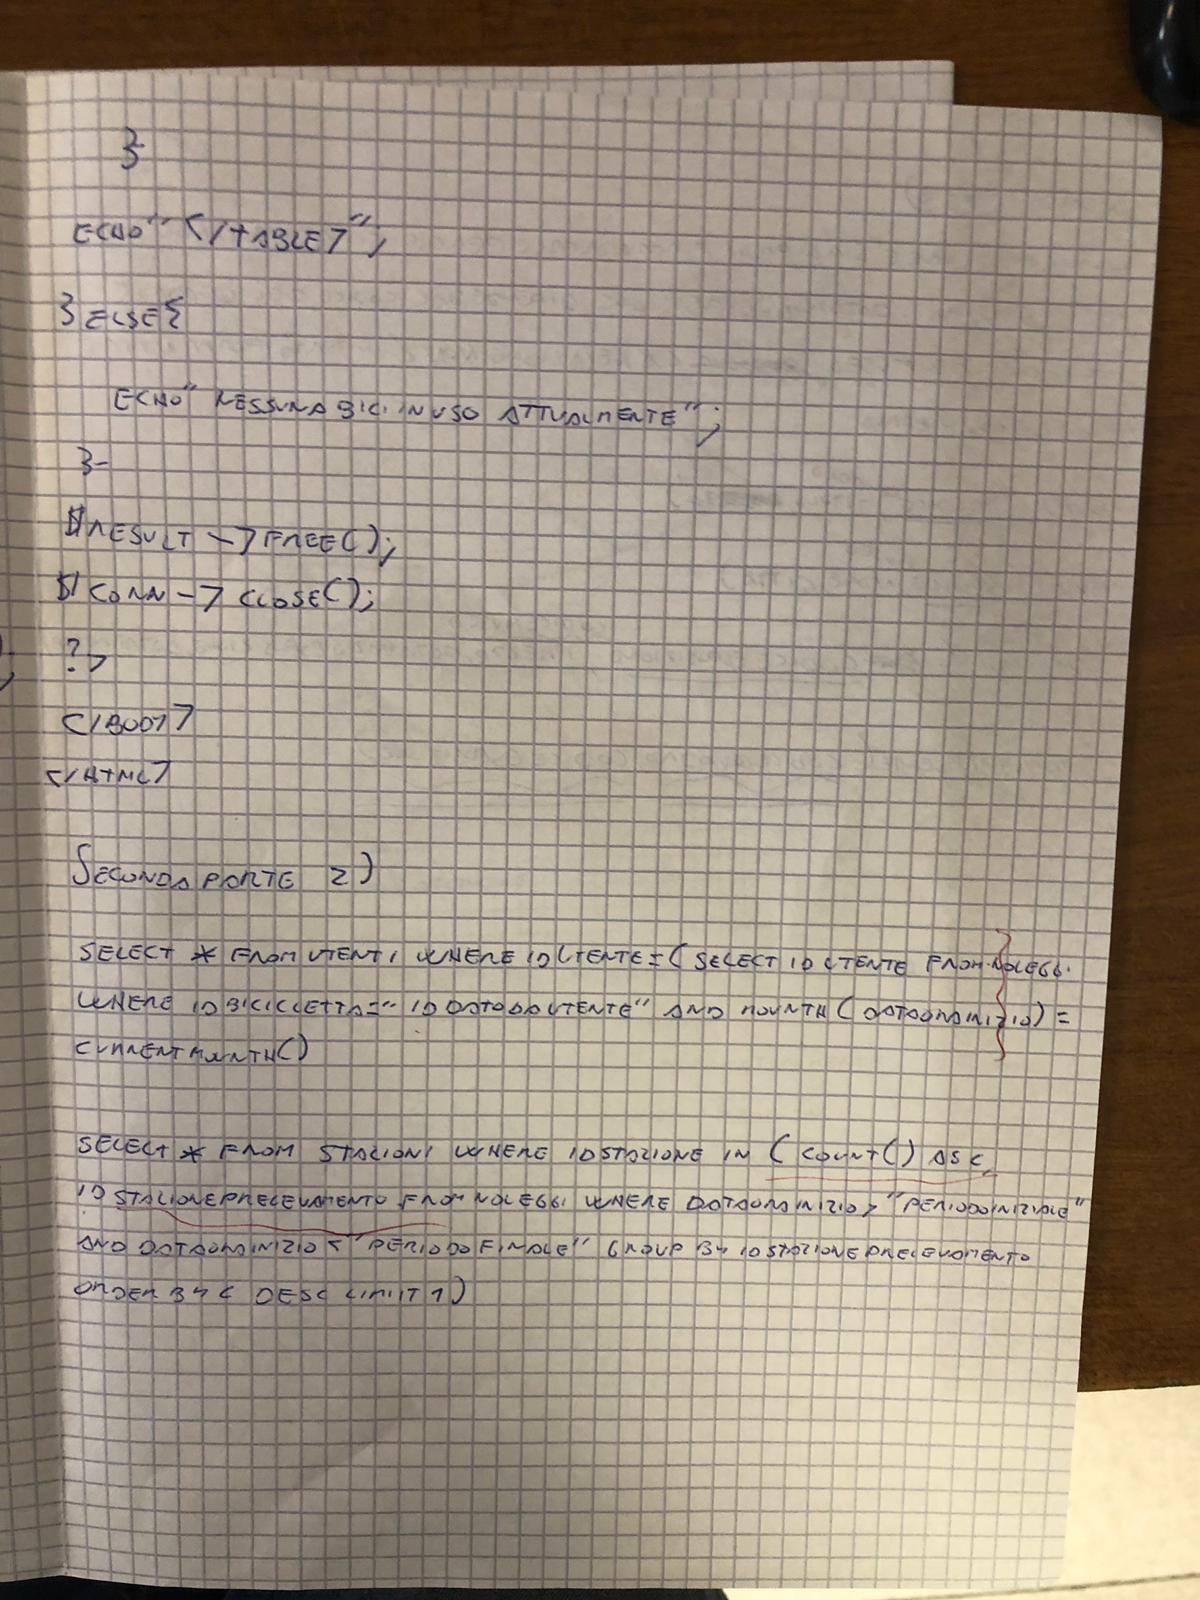 }
ECHO" </TABLE>";
}ELSE{
ECHO" NESSUNA BICI IN USO ATTUALMENTE";
}
$RESULT->FREE();
$CONN->CLOSE();
?>
</BODY>
</HTML>
SECONDA PARTE 2)
SELECT * FROM UTENTI WHERE IDUTENTE=( SELECT IDUTENTE FROM NOLEGGI
WHERE IDBICICLETTA=" IDDATODAUTENTE" AND MOUNTH( DATAORAINIZIO) =
CURRENTMOUNTH()
SELECT * FROM STAZIONI WHERE IDSTAZIONE IN ( COUNT() AS C,
IDSTAZIONEPRELEVAMENTO FROM NOLEGGI WHERE DATAORAINIZIO> "PERIODOINIZIALE"
AND DATAORAINIZIO < "PERIODOFINALE" GROUP BY IDSTAZIONEPRELEVAMENTO
ORDER BY C DESC LIMIT 1)